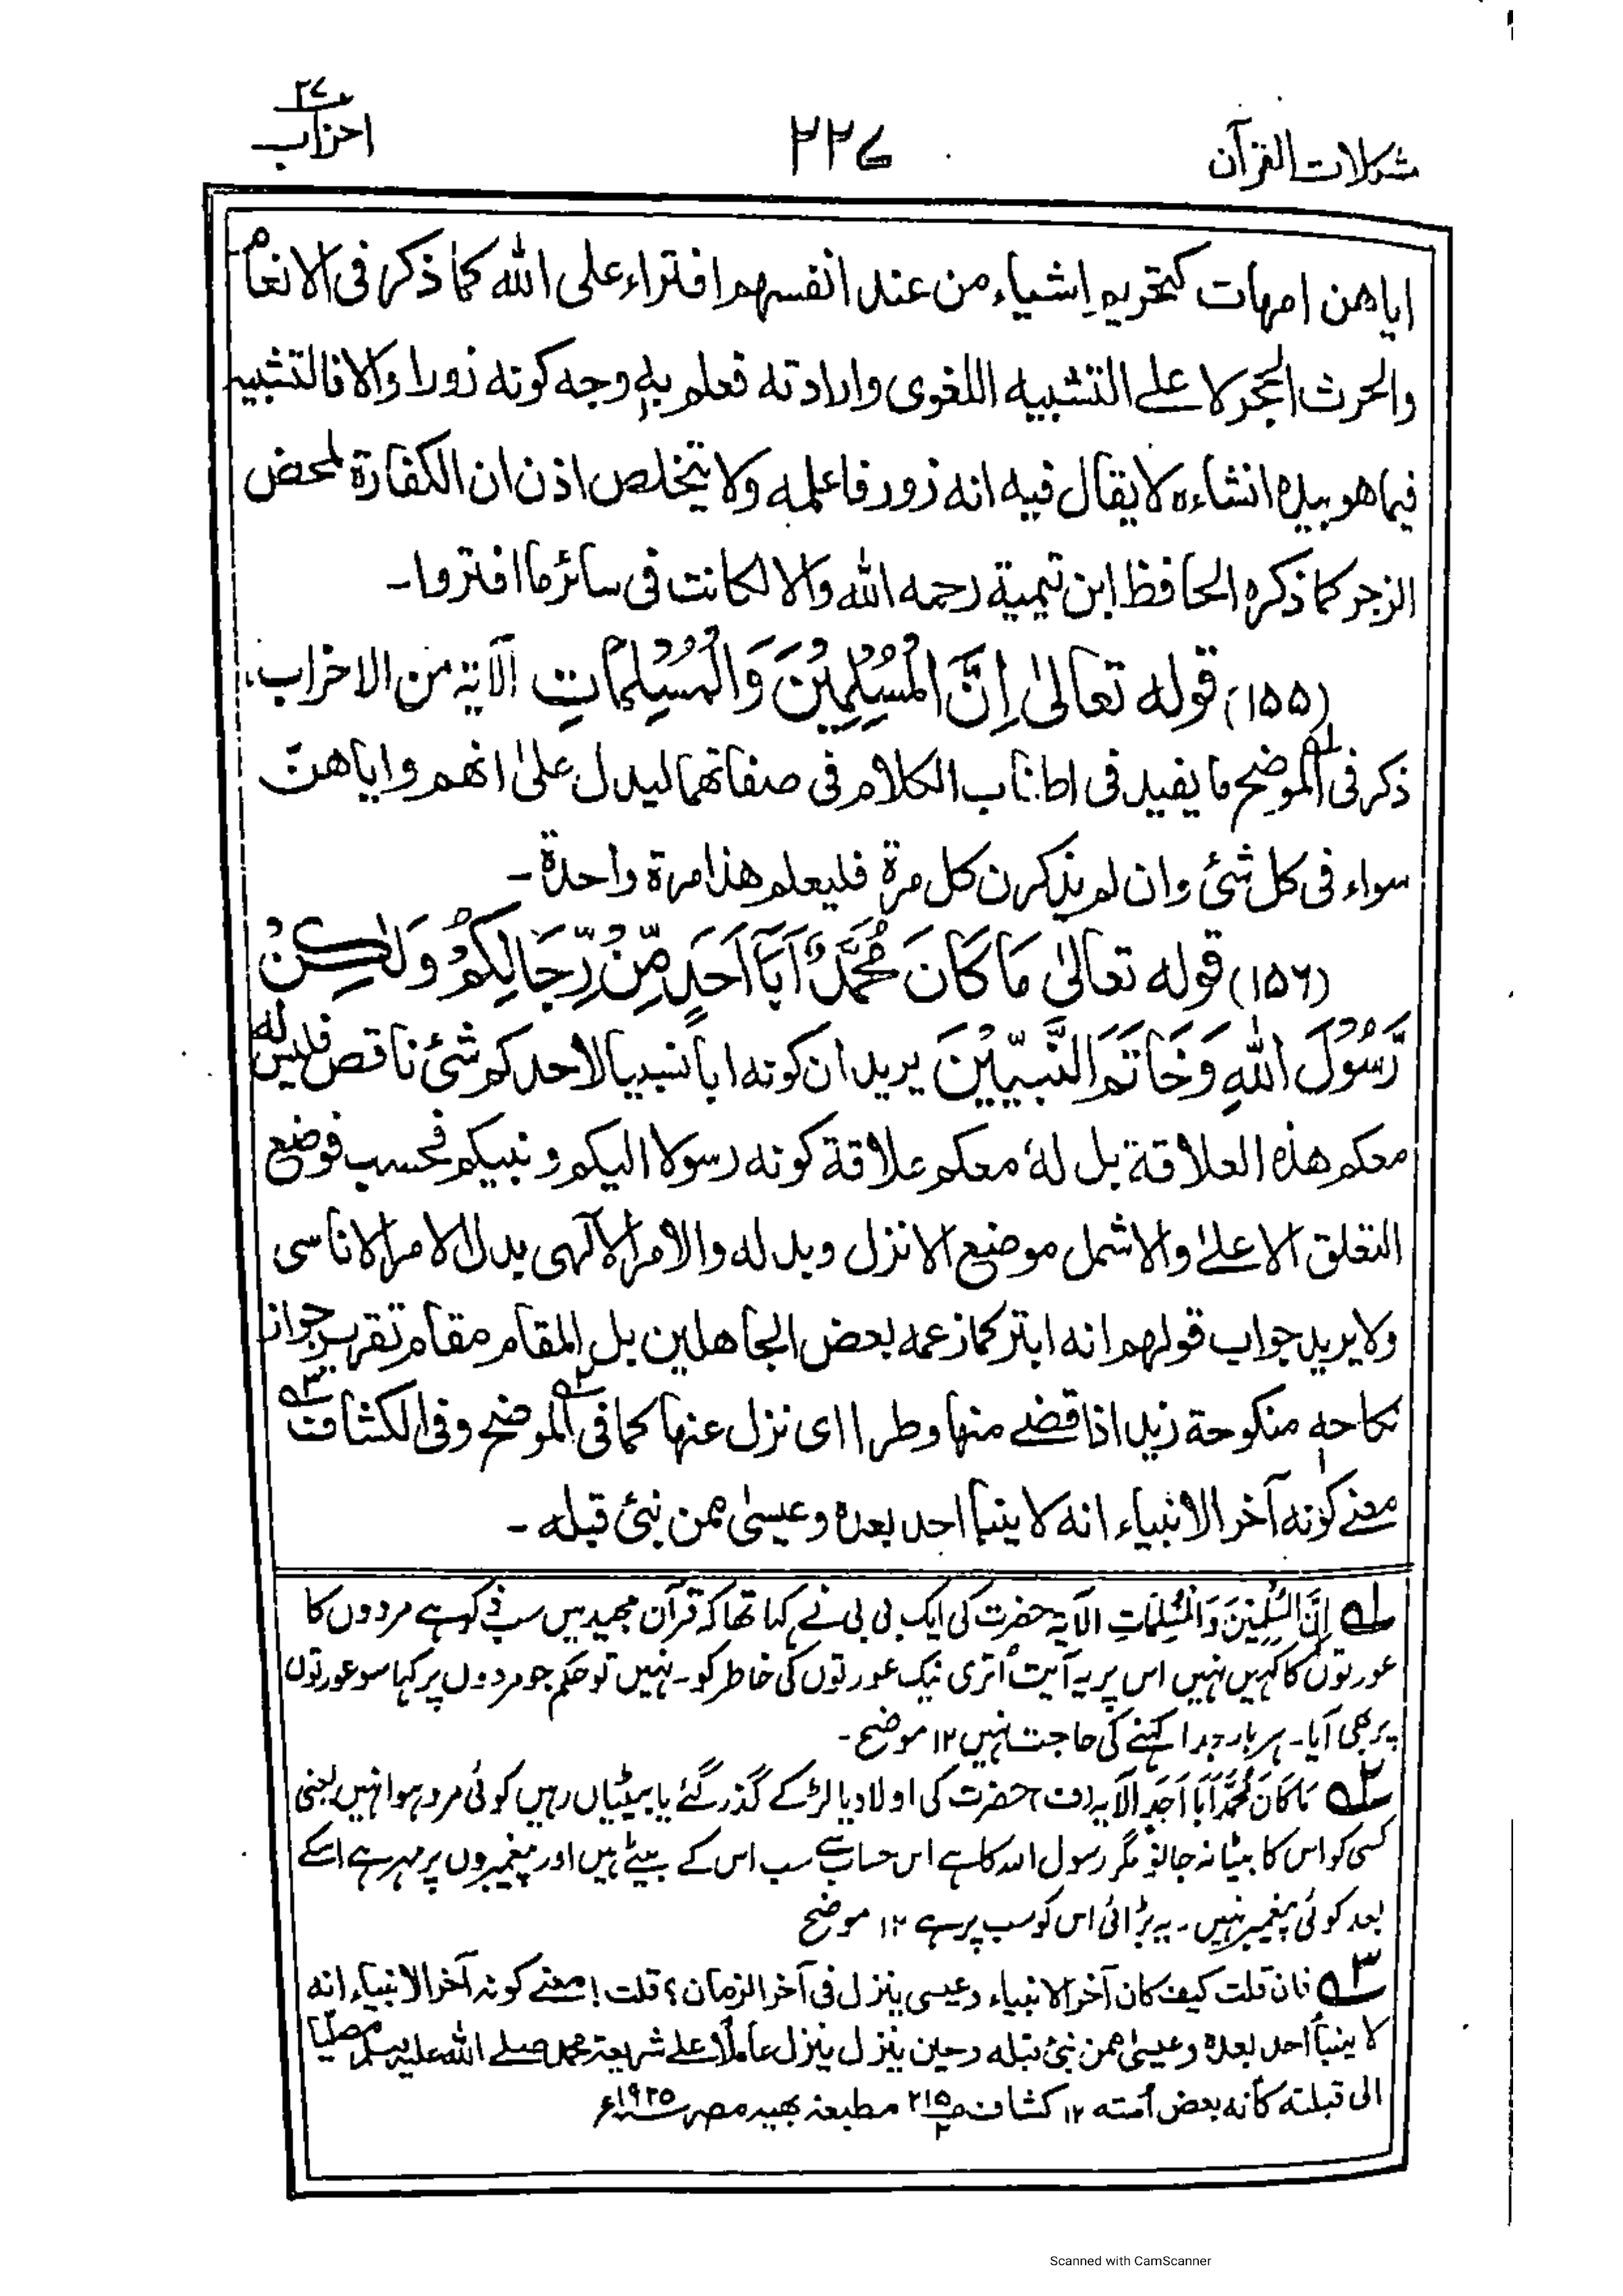 مشكلات القرآن
۲۲۷
احزاب
اياهن امهات كتحريم اشياء من عند انفسهم افتراء على الله كما ذكر فى الانعام
والحرث الحجر لا على التشبيه اللغوى وارادته فعلم به وجه كونه زورا والا فالتشبيه
فيما هو بيده انشاءه لا يقال فيه انه زور فاعلمه ولا يتخلص اذن ان الكفارة لمحض
الزجر كما ذكره الحافظ ابن تيمية رحمه الله والا لكانت فى سائر ما افتروا۔
(۱۵۵) قوله تعالىٰ اِنَّ الْمُسْلِمِيْنَ وَالْمُسْلِمَاتِ الآية من الاحزاب۔
ذكر فى الموضح ما يفيد فى اطناب الكلام فى صفاتهما ليدل علىٰ انهم واياهنّ
سواء فى كل شئ وان لم يذكرن كل مرة فليعلم هذا مرة واحدة۔
(۱۵۶) قوله تعالىٰ مَا كَانَ مُحَمَّدٌ اَبَآ اَحَدٍ مِّنْ رِّجَالِكُمْ وَلٰكِنْ
رَّسُوْلَ اللهِ وَخَاتَمَ النَّبِيّيْنَ يريد ان كونه ابا نسبيا لاحدكم شئ ناقص فليس له
معكم هذه العلاقة بل لهٗ معكم علاقة كونه رسولا اليكم ونبيكم فحسب فوضع
التعلق الاعلىٰ والاشمل موضع الانزل وبدله والامر الآلهى بدل الامر الاناسى
ولا يريد جواب قولهم انه ابتر كما زعمه بعض الجاهلين بل المقام مقام تقرير جواز
نكاحه منكوحة زيد اذا قضى منها وطرا اى نزل عنها كما فى الموضح وفى الكشاف
معنى كونه آخر الانبياء انه لا ينبأ احد بعده وعيسىٰ ممن نبئ قبله۔
۱ اِنَّ الْمُسْلِمِيْنَ وَالْمُسْلِمَاتِ الآية حضرت کی ایک بی بی نے کہا تھا کہ قرآن مجید میں سب ذکر ہے مردوں کا
عورتوں کا کہیں نہیں اس پر یہ آیت اُتری نیک عورتوں کی خاطر کو۔ نہیں تو حکم جو مردوں پر کہا سو عورتوں
پر بھی آیا۔ ہر بار جدا کہنے کی حاجت نہیں ۱۲ موضح۔
۲ مَا كَانَ مُحَمَّدٌ اَبَآ اَحَدٍ الآیہ (ف) حضرت کی اولاد یا لڑکے گذر گئے یا بیٹیاں رہیں کوئی مرد ہوا نہیں یعنی
کسی کو اس کا بیٹا نہ جانو مگر رسول اللہ کا ہے اس حساب سے سب اس کے بیٹے ہیں اور پیغمبروں پر مہر ہے اسکے
بعد کوئی پیغمبر نہیں۔ یہ بڑائی اس کو سب پر ہے ۱۲ موضح
۳ فان قلت كيف كان آخر الانبياء وعيسى ينزل فى آخر الزمان؟ قلت! معنے كونه آخر الانبياء انه
لا ينبأ احد بعده وعيسىٰ ممن نبئ قبله وحين ينزل ينزل عاملا على شريعة محمد صلى الله عليه وسلم مصليا
الى قبلته كأنه بعض اُمته ۱۲ كشاف ص۲۱۵ ۲ مطبعه بهيه مصر ۱۹۲۵ء
Scanned with CamScanner